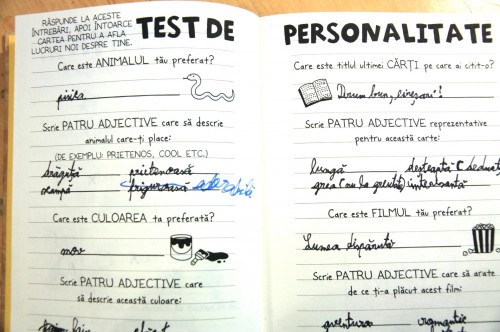 RĂSPUNDE LA ACESTE
ÎNTREBĂRI, APOI ÎNTOARCE
CARTEA PENTRU A AFLA
LUCRURI NOI DESPRE TINE.
TEST DE
Care este ANIMALUL tău preferat?
pisica
Scrie PATRU ADJECTIVE care să descrie
animalul care-ți place:
(DE EXEMPLU: PRIETENOS, COOL ETC.)
drăguță prietenoasă
scumpă friguroasă adorabilă
Care este CULOAREA ta preferată?
mov
Scrie PATRU ADJECTIVE care
să descrie această culoare:
PERSONALITATE
Care este titlul ultimei CĂRȚI pe care ai citit-o?
Drum bun,
Scrie PATRU ADJECTIVE reprezentative
pentru această carte:
lungă desteaptă
grea (nu la greutate) interesantă
Care este FILMUL tău preferat?
Lumea dispărută
Scrie PATRU ADJECTIVE care să arate
de ce ți-a plăcut acest film: